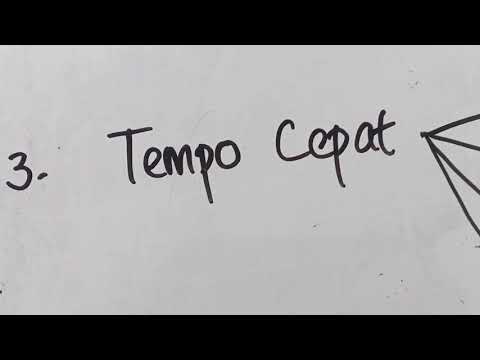 3. Tempo Cepat